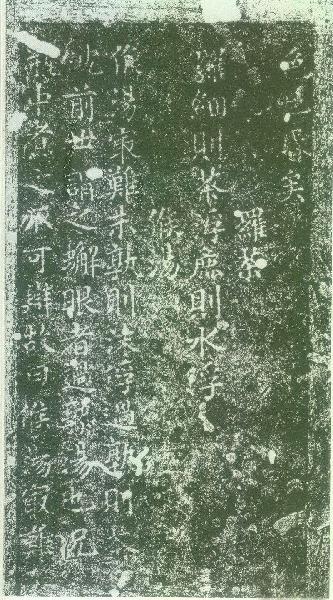 色已昏矣
羅茶
羅細則茶浮麄則水浮
候湯
候湯最難未熟則沫浮過熟則茶
沈前世謂之蠏眼者過熟湯也況
瓶中煮之不可辨故曰候湯最難